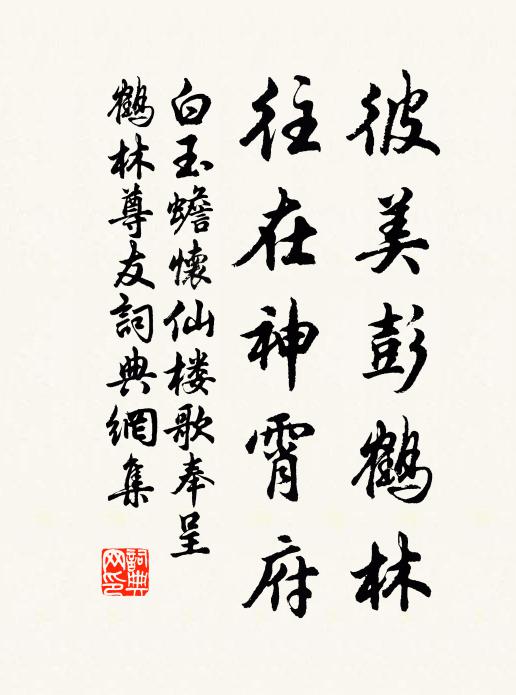 彼美彭鹤林
往在神霄府
白玉蟾懷仙楼歌奉呈
鶴林尊友詞典網集
詞典网印